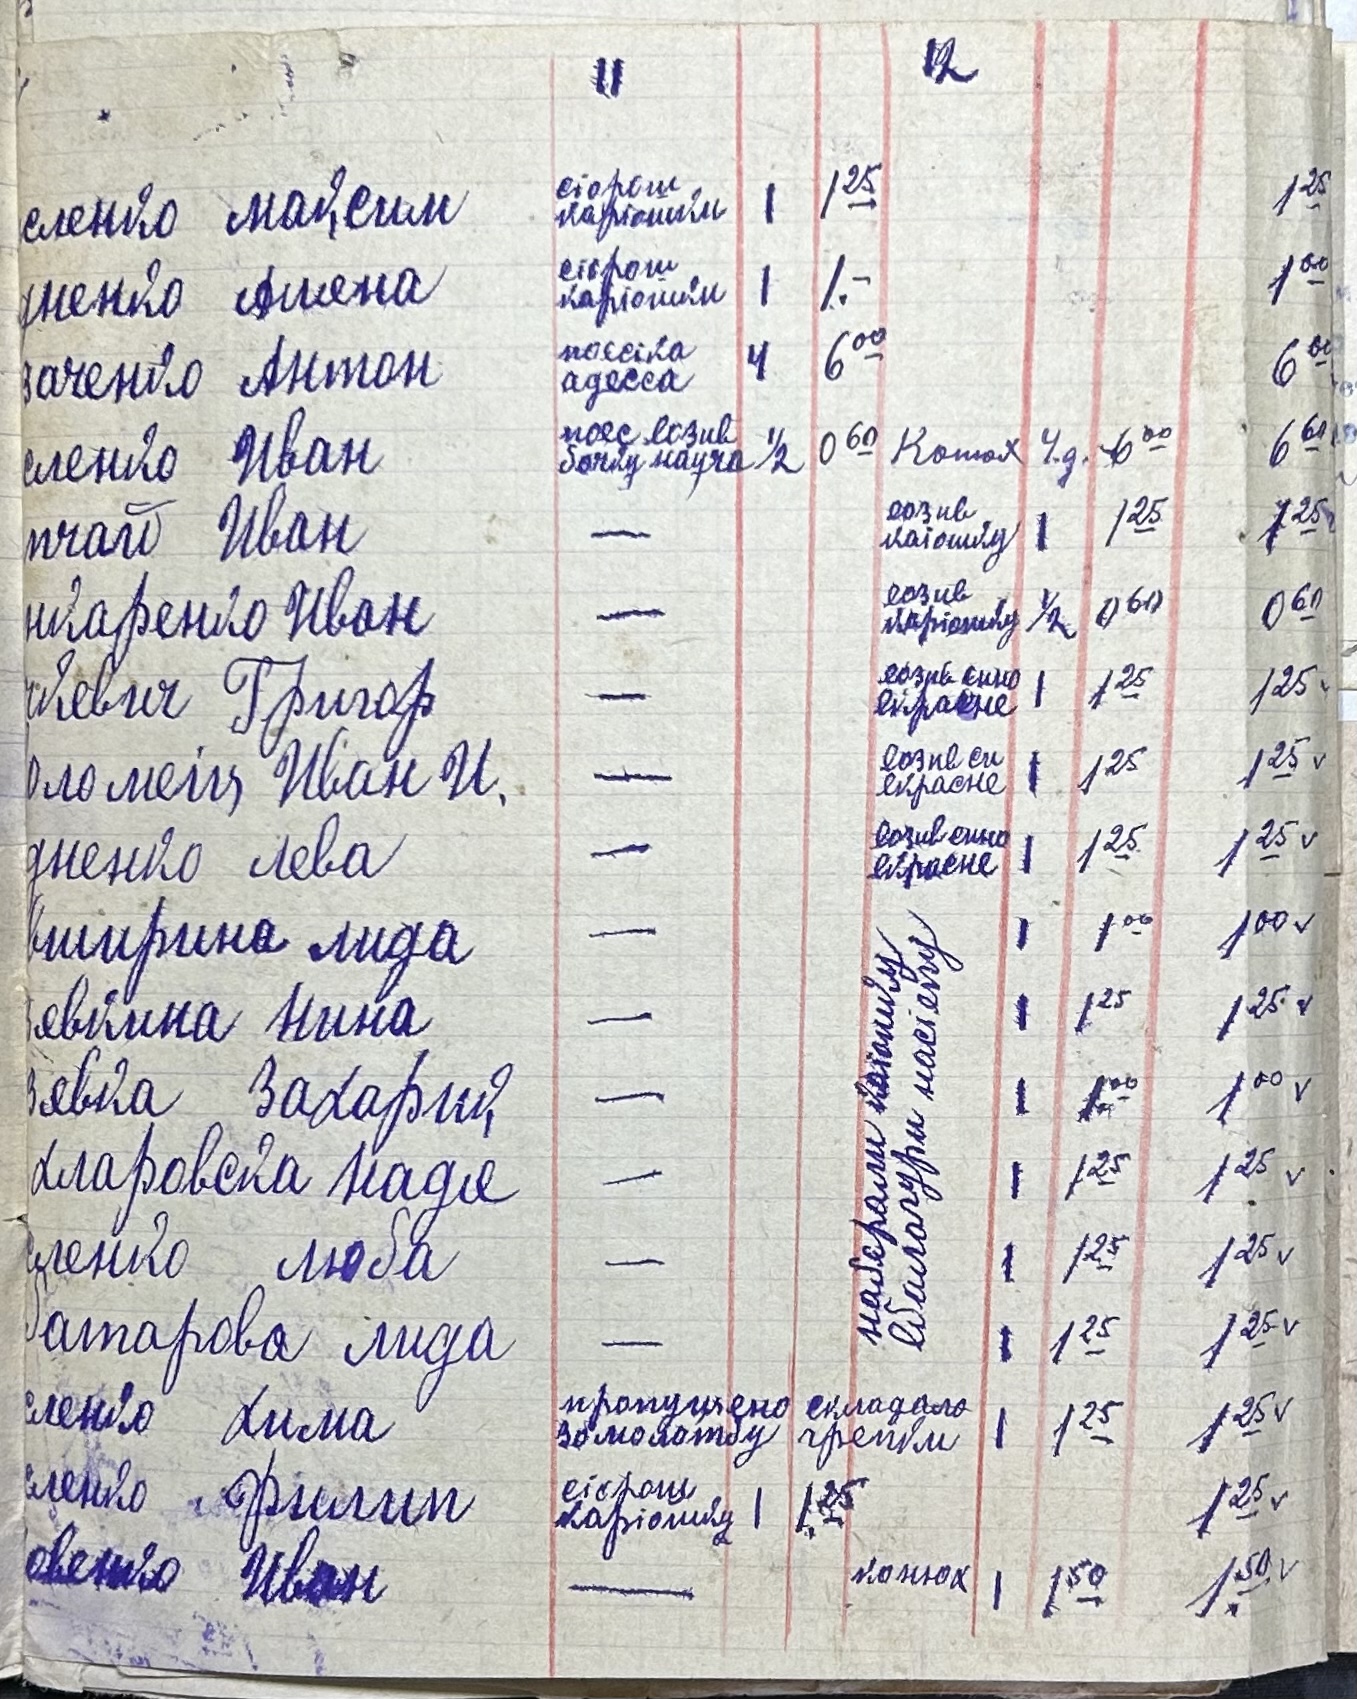 11 12
сленко максим сторож картошки 1 1 25 1 25
дненко Алена сторож картошки 1 1.- 1 00
заченко Антон поєсіка адесса 4 6 00 6 00
сленко Иван поес возив бочку 1/2 0 60 4.д. 6 00 6 60
пчати Иван — возив катошку 1 1 25 1 25
нкаренко Иван — возив картошку 1/2 0 60 0 60
кевич Григор — возив синно вкрасне 1 1 25 1 25 v
оломеіц Иван И. — возив си вкрасне 1 1 25 1 25 v
дненко лева — возив синно вкрасне 1 1 25 1 25 v
лида — 1 1 00 1 00 v
зявкина Нина — 1 1 25 1 25 v
зявка Захарий — 1 1 00 1 00 v
хларовска Надя — 1 1 25 1 25 v
сленко люба — 1 1 25 1 25 v
батарова лида — 1 1 25 1 25 v
набєрали катошку
насіепу
сленко Хима пропущено складала
замолотбу 1 1 25 1 25 v
сленко Филип сторож картошку 1 1 25 1 25 v
овенко Иван — конюх 1 1 50 1 50 v